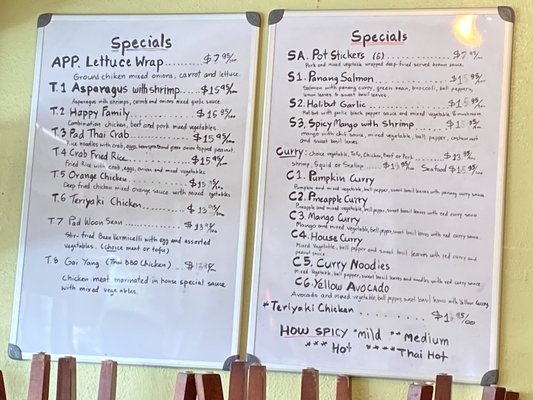 Specials
APP. Lettuce Wrap........ $7.95/100
Ground chicken mixed onions, carrot and lettuce.
T.1 Asparagus with shrimp........ $15.95/100
Asparagus with shrimps, carrots and onions mixed garlic sauce
T.2 Happy Family ........ $15.95/100
Combination chicken, beef and pork mixed vegetables
T.3 Pad Thai Crab ........ $15.95/100
Rice noodles with crab, eggs, and green onion topped peanut.
T.4 Crab Fried Rice........ $15.95/100
Fried Rice with crab, eggs, onion and mixed vegetables
T.5 Orange Chicken........
Deep fried chicken mixed orange sauce with mixed vegetables
T.6 Teriyaki Chicken........ $13.95/100
T.7 Pad Woon Sen........ $13.95/100
Stir-fried Bean Vermicelli with egg and assorted
vegetables. (choice meat or tofu)
T.8 Gai Yang (Thai BBQ Chicken)... $13.95/100
Chicken meat marinated in house special sauce
with mixed vegetables.
Specials
SA. Pot Stickers (6) ........ $7.95/100
Pork and mixed vegetable wrapped deep-fried served brown sauce.
S1. Panang Salmon ........ $15.95/100
Salmon with panang curry, green bean, broccoli, bell peppers,
lemon leaves & sweet basil leaves.
S2. Halibut Garlic ........ $15.95/100
Halibut with garlic black pepper sauce and mixed vegetable & mushroom
S3. Spicy Mango with Shrimp ........
mango with chili sauce, mixed vegetable, bell pepper, cashew nut
and sweet basil leaves.
Curry: choice vegetable, Tofu, Chicken, Beef or Pork ........ $13.95/100
Shrimp, Squid or Scallop ........ Seafood $15.95/100
C1. Pumpkin Curry
Pumpkin and mixed vegetable, bell pepper, sweet basil leaves with panang curry sauce
C2. Pineapple Curry
Pineapple and mixed vegetable, bell pepper, sweet basil leaves with red curry sauce
C3. Mango Curry
Mango and mixed vegetable, bell pepper, sweet basil leaves with red curry sauce
C4. House Curry
Mixed Vegetable, bell pepper and sweet basil leaves with red curry and
peanut sauce
C5. Curry Noodles
Mixed Vegetable, bell pepper, sweet basil leaves and noodles with red curry sauce
C6. Yellow Avocado
Avocado and mixed vegetable, bell pepper, sweet basil leaves with Yellow Curry
*Teriyaki Chicken ........
How Spicy *mild **Medium
***Hot ****Thai Hot